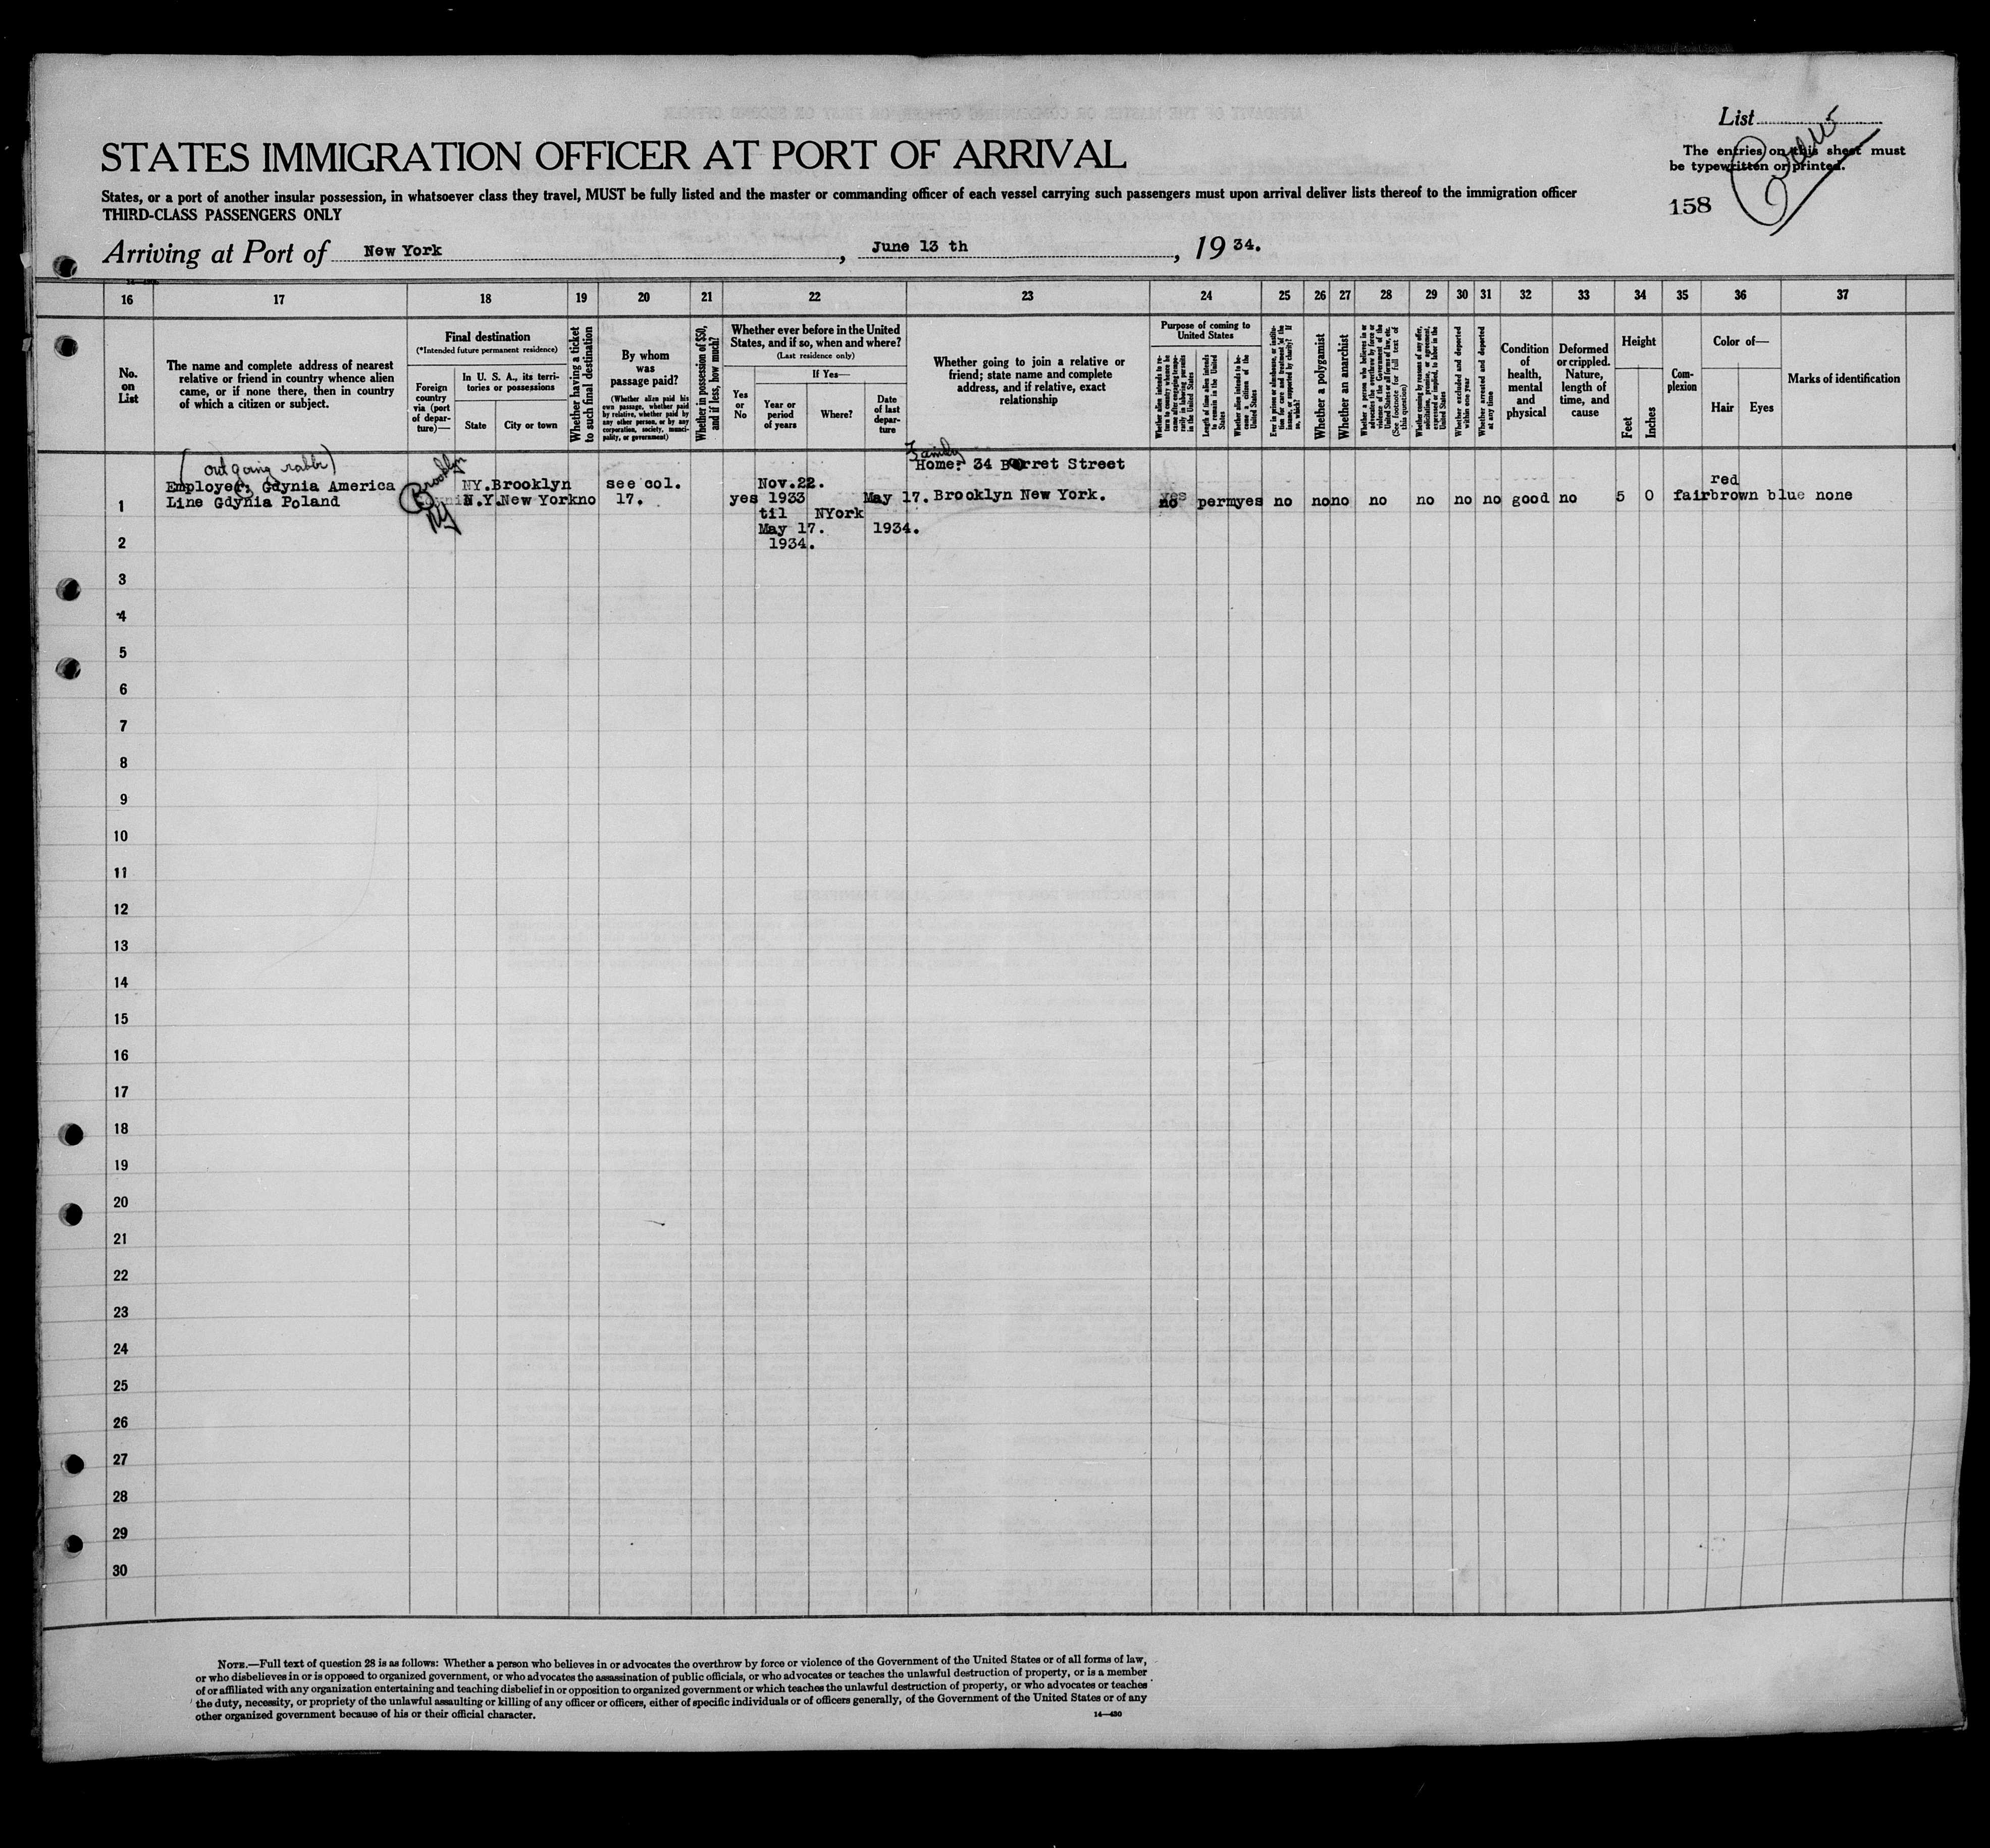 List
STATES IMMIGRATION OFFICER AT PORT OF ARRIVAL
The entries on this sheet must
be typewritten or printed.
States, or a port of another insular possession, in whatsoever class they travel, MUST be fully listed and the master or commanding officer of each vessel carrying such passengers must upon arrival deliver lists thereof to the immigration officer
THIRD-CLASS PASSENGERS ONLY
158
Arriving at Port of New York, June 13 th, 19 34.
16 17 18 19 20 21 22 23 24 25 26 27 28 29 30 31 32 33 34 35 36 37
No.
on
List
The name and complete address of nearest
relative or friend in country whence alien
came, or if none there, then in country
of which a citizen or subject.
Final destination
(*Intended future permanent residence)
Foreign
country
via (port
of depar-
ture)—
In U. S. A., its terri-
tories or possessions
State
City or town
Whether having a ticket
to such final destination
By whom
was
passage paid?
(Whether alien paid his
own passage, whether paid
by relative, whether paid by
any other person, or by any
corporation, society, munici-
pality, or government)
Whether in possession of $50,
and if less, how much?
Whether ever before in the United
States, and if so, when and where?
(Last residence only)
If Yes—
Yes
or
No
Year or
period
of years
Where?
Date
of last
depar-
ture
Whether going to join a relative or
friend; state name and complete
address, and if relative, exact
relationship
Purpose of coming to
United States
Whether alien intends to re-
turn to country whence he
came after engaging tempo-
rarily in laboring pursuits
in the United States
Length of time alien intends
to remain in the United
States
Whether alien intends to be-
come a citizen of the
United States
Ever in prison or almshouse, or institu-
tion for care and treatment of the
insane, or supported by charity? If
so, which?
Whether a polygamist
Whether an anarchist
Whether a person who believes in or
advocates the overthrow by force or
violence of the Government of the
United States or all forms of law, etc.
(See footnote for full text of
this question)
Whether coming by reason of any offer,
solicitation, promise, or agreement,
expressed or implied, to labor in the
United States
Whether excluded and deported
within one year
Whether arrested and deported
at any time
Condition
of
health,
mental
and
physical
Deformed
or crippled.
Nature,
length of
time, and
cause
Height
Feet
Inches
Com-
plexion
Color of—
Hair
Eyes
Marks of identification
(outgoing rabbi)
Employer; Gdynia America
Line Gdynia Poland
Brooklyn
NY
NY. Brooklyn
N.Y. New York
no
see col.
17.
yes
Nov.22.
1933
til
May 17.
1934.
NYork
May 17.
1934.
Family
Home: 34 Barret Street
Brooklyn New York.
yes
no
perm yes no no no no no no no good no 5 0 fair
red
brown blue none
1
2
3
4
5
6
7
8
9
10
11
12
13
14
15
16
17
18
19
20
21
22
23
24
25
26
27
28
29
30
NOTE.—Full text of question 28 is as follows: Whether a person who believes in or advocates the overthrow by force or violence of the Government of the United States or of all forms of law,
or who disbelieves in or is opposed to organized government, or who advocates the assassination of public officials, or who advocates or teaches the unlawful destruction of property, or is a member
of or affiliated with any organization entertaining and teaching disbelief in or opposition to organized government or which teaches the unlawful destruction of property, or who advocates or teaches
the duty, necessity, or propriety of the unlawful assaulting or killing of any officer or officers, either of specific individuals or of officers generally, of the Government of the United States or of any
other organized government because of his or their official character.
14—430